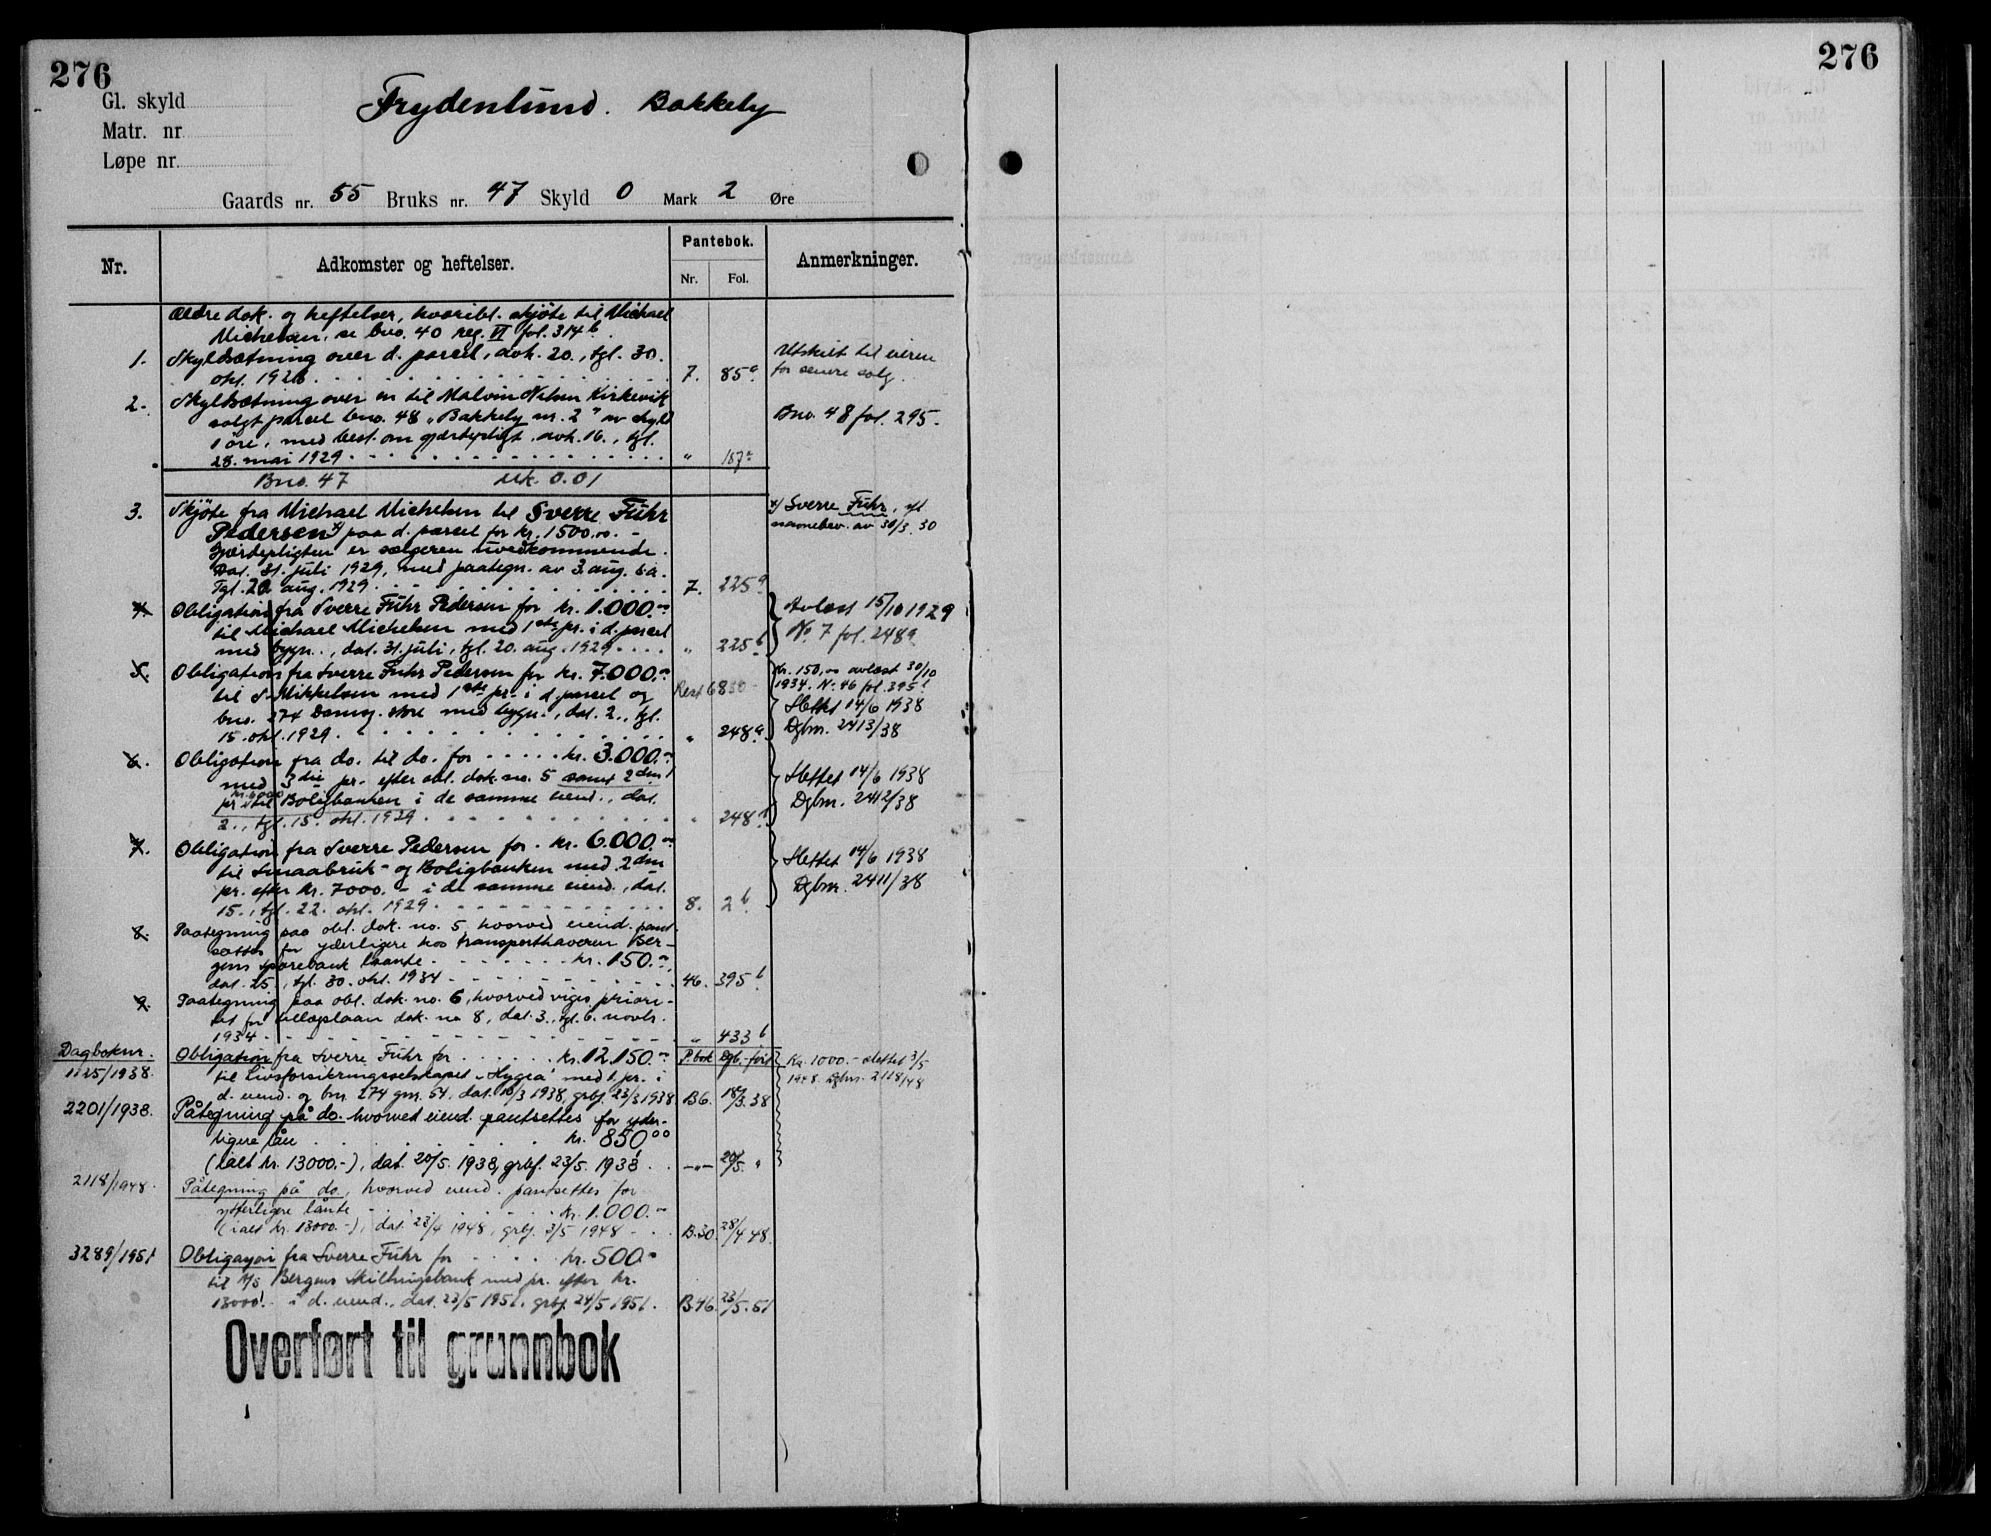 276
Gl. skyld
Matr. nr
Løpe nr.
Frydenlund. Bakkely
Gaards nr. 55 Bruks nr. 47 Skyld 0 Mark 2 Øre
Nr.
Adkomster og heftelser.
Pantebok.
Nr. Fol.
Anmerkninger.
Ældre dok. og heftelser, hvoribl. skjöte til Michael
Michelsen, se bno. 40 reg. VI fol. 314b.
1. Skyldsætning over d. parcel, avh. 20., tgl. 30.
okt. 1928 7. 85a
Utskilt til eieren
for senere salg.
2. Skyldsætning over en til Malvin Nilsen Kirkevik
solgt parcel bno. 48 „Bakkely nr. 2" av skyld
1 öre, med best. om gjerdepligt, avh. 16., tgl.
28. mai 1929 " 187a
Bno. 48 fol. 295.
Bno. 47 Mk. 0.01
3. Skjöte fra Michael Michelsen til Sverre Führ
Pedersen x) paa d. parcel for kr. 1500,oo. -
Gjerdepligten er sælgeren uvedkommende.
Dat. 31. juli 1929, med paategn. av 3. aug. s.a.
Tgl. 20 aug. 1929 7. 225a
x) Sverre Führ, ifl
navnebev. av 30/3. 30
4. Obligation fra Sverre Führ Pedersen for kr. 1.000.-
til Michael Michelsen med 1ste pr. i d. parcel
med bygn., dat. 31. juli, tgl. 20. aug. 1929 " 225b
Avlæst 15/10 1929
No. 7 fol. 248a
5. Obligation fra Sverre Führ Pedersen for kr. 7.000.-
til S. Mikkelsen med 1ste pr. i d. parcel og Rest 6850
bno. 274 Damsg. store med bygn., dat. 2., tgl.
15. okt. 1929 " 248a
Kr. 150,oo avlæst 30/10
1934. No. 46 fol. 395b
Slettet 14/6 1938
Dgbnr. 2413/38
6. Obligation fra do. til do. for kr. 3.000.-
med 3die pr. efter obl. dok. no. 5 samt 2den
pr. kr. 6000 til Boligbanken i de samme eiend., dat.
2., tgl. 15. okt. 1929 " 248b
Slettet 14/6 1938
Dgbnr. 2412/38
7. Obligation fra Sverre Pedersen for kr. 6.000.-
til Smaabruk- og Boligbanken med 2den
pr. efter kr. 7000.- i de samme eiend., dat.
15., tgl. 22. okt. 1929 8. 2b
Slettet 14/6 1938
Dgbnr. 2411/38
8. Paategning paa obl. dok. no. 5, hvorved eiend. pant-
sættes for yderligere hos transporthaveren Ber-
gens sparebank laante kr. 150.-
dat. 25., tgl. 30. okt. 1934 46. 395b
9. Paategning paa obl. dok. no. 6, hvorved viges priori-
tet for tillægslaan dok. no 8, dat. 3., tgl. 6. novbr.
1934 " 433b
Dagboknr.
1125/1938. Obligation fra Sverre Führ for kr. 12.150.- P.bok Dgb.-ført
til Livsforsikringsselskapet „Hygea" med 1. pr. i
d. eiend. og bnr. 274 gnr. 54, dat. 10/3 1938, grbf. 23/3 1938 B6. 18/3. 38
Kr. 1000.- slettet 3/5
1948. Dgbnr. 2118/48
2201/1938. Påtegning på do. hvorved eiend. pantsettes for yder-
ligere lån kr. 850 00
(ialt kr. 13000.-), dat. 20/5. 1938, grbf. 23/5. 1938. -"- 20/5. "
2118/1948. Påtegning på do., hvorved eiend. pantsettes for
ytterligere lånte kr. 1.000.-
(ialt kr. 13000.-), dat. 23/4 1948, grbf. 3/5 1948 B.30. 28/4 48.
3289/1951 Obligasjon fra Sverre Führ for kr. 500.-
til A/S Bergens Skillingsbank med pr. efter kr.
13000.- i d. eiend., dat. 23/5 1951, grbf. 24/5 1951. B.46. 23/5. 51
Overført til grunnbok
276